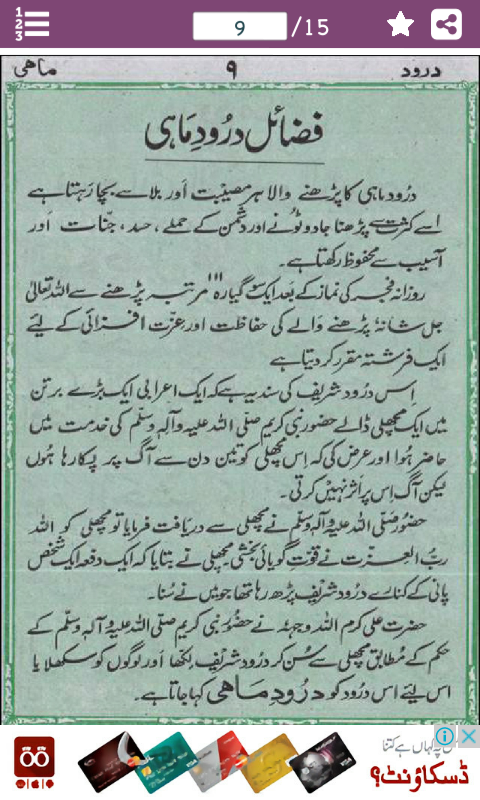 1
2
3
9 /15
درود ۹ ماھی
فضائل درُودِ مَاہی
درُود ماہی کا پڑھنے والا ہر مصیبت اَور بلا سے بچا رَہتا ہے
اِسے کثرت سے پڑھنا جادو ٹُونے اور دشمن کے حملے ، حسد ، جنّات اَور
آسیب سے محفُوظ رکھتا ہے۔
روزانہ فجر کی نماز کے بعد ایک سو گیارہ ۱۱۱ مرتبہ پڑھنے سے اللہ تعالیٰ
جل شانہٗ پڑھنے والے کی حفاظت اور عزّت افزائی کے لیٔے
ایک فرشتہ مقرر کر دیتا ہے
اِس درُود شریف کی سند یہ ہے کہ ایک اعرابی ایک بڑے برتن
میں ایک مچھلی ڈالے حضور نبی کریم صلّی اللہ علیہ وآلہٖ وسلّم کی خدمت میں
حاضر ہُوا اور عرض کی کہ اِس مچھلی کو تین دن سے آگ پر پکا رہا ہُوں
لیکن آگ اِس پر اَثر نہیں کرتی۔
حضُور صَلّی اللہ علیہ وآلہٖ وسلّم نے مچھلی سے دریافت فرمایا تو مچھلی کو اللہ
ربُّ العِزّت نے قوّتِ گویائی بخشی مچھلی نے بتایا کہ ایک دفعہ ایک شخص
پانی کے کنارے درُود شریف پڑھ رہا تھا جو میں نے سُنا۔
حضرت علی کرم اللہ وجہہٗ نے حضُور نبی کریم صلّی اللہ علیہ وآلہٖ وسلّم کے
حکم کے مُطابق مچھلی سے سُن کر درُود شریف لکھا اَور لوگوں کو سکھلایا
اس لیٔے اس درُود کو درُودِ مَاھی کہا جاتا ہے۔
پہ کہاں ہے کتنا
ڈسکاؤنٹ؟
VISA